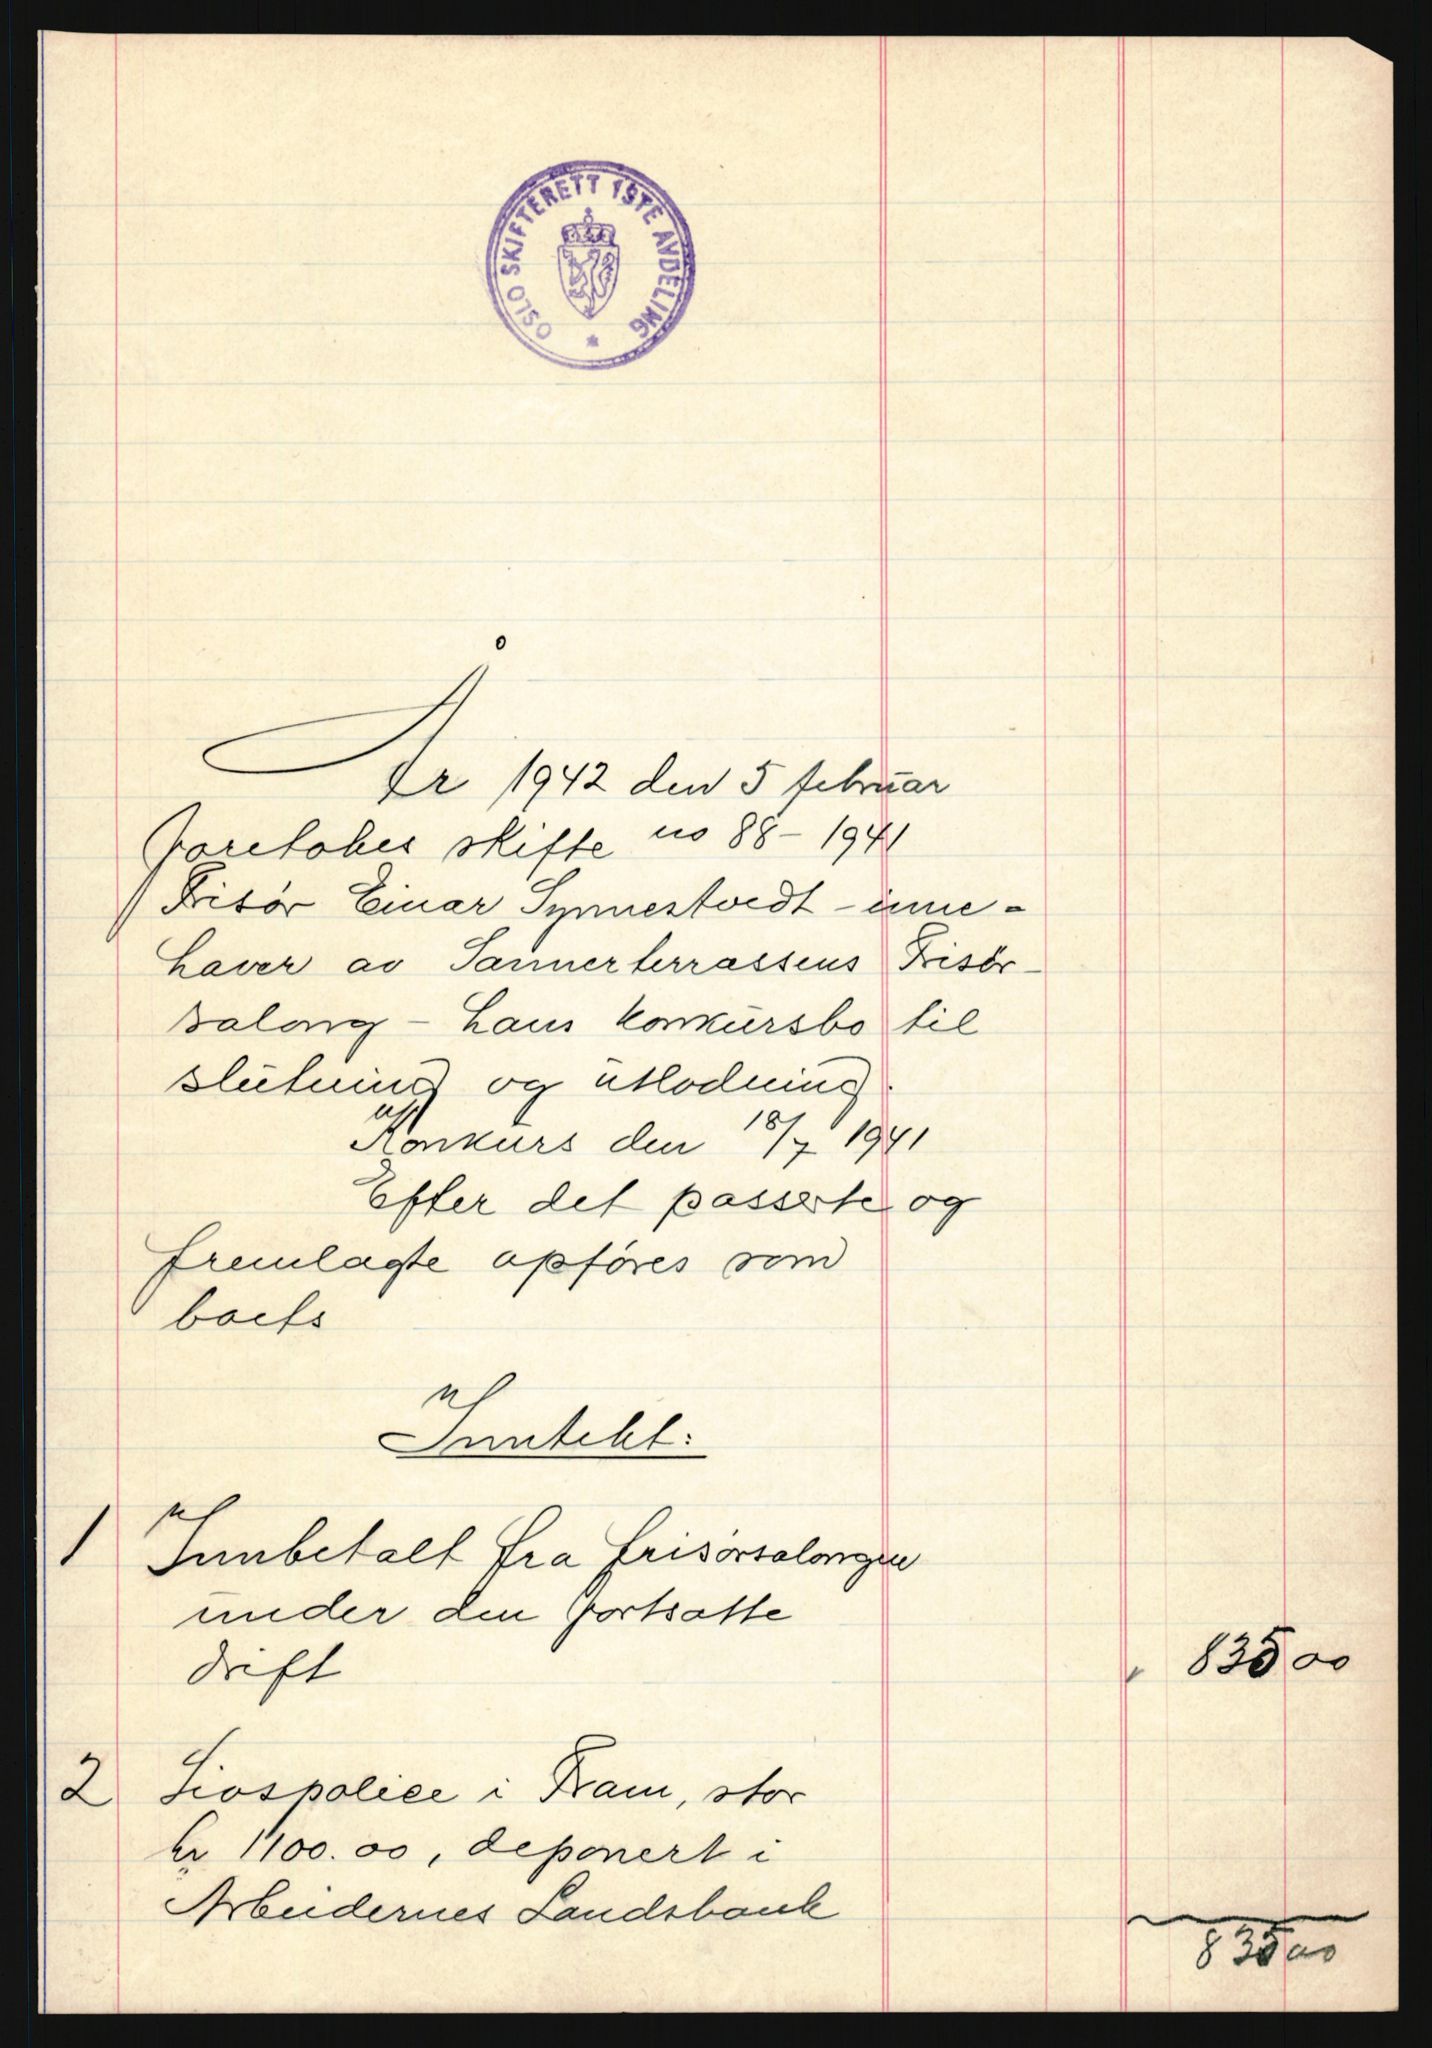 OSLO SKIFTERETT 1STE AVDELING
År 1942 den 5 februar
foretokes skifte no 88 - 1941
Frisør Einar Synnestvedt - inne-
haver av Sannerterrassens Frisør-
salong - hans konkursbo til
slutning og utlodning.
Konkurs den 18/7 1941
Efter det passerte og
fremlagte opføres som
boets
Inntekt:
1 Innbetalt fra frisørsalongen
under den fortsatte
drift 835 00
2 Livspolice i Fram, stor
kr 1100.00, deponert i
Arbeidernes Landsbank
835 00